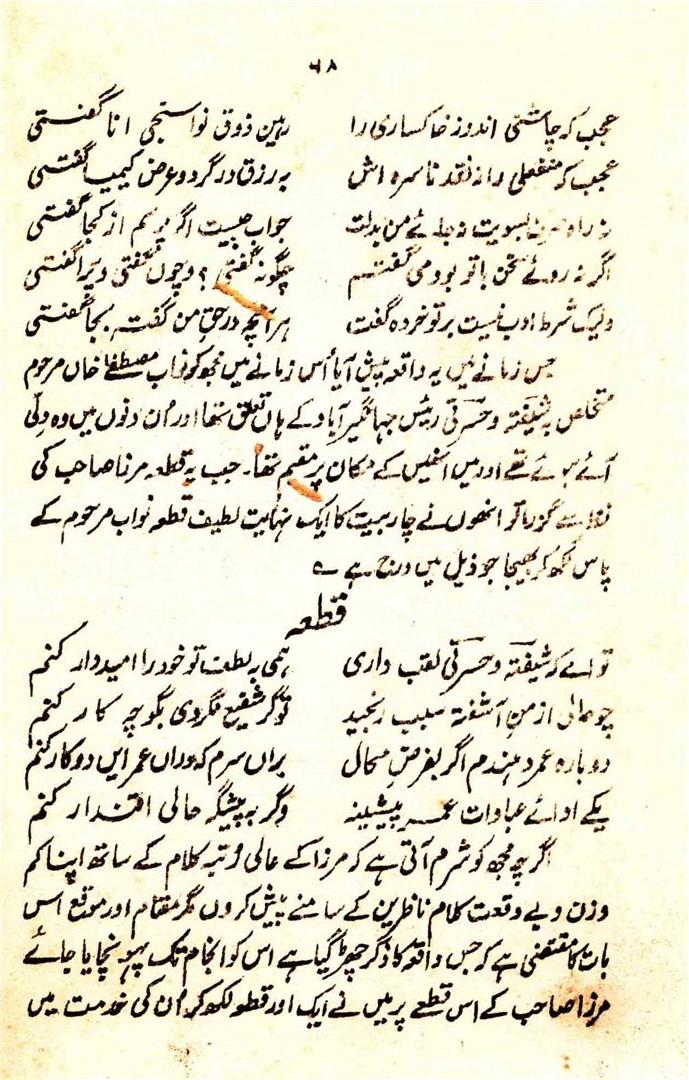 ۶۸
عجب کہ چاشنی اندوز خاکساری را رہین ذوق نواسنجی انا گفتی
عجب کہ منفعلی را نہ نقد ناسرہ اش بہ رزق در گرد و عرض کیمیا گفتی
نہ راہ بسویت نہ جائے من بدلت جواب چیست اگر پرسم از کجا گفتی
اگر نہ روئے سخن با تو بودمی گفتم چگونہ گفتی؟ وچوں گفتی و چرا گفتی
ولیک شرط ادب نیست بر تو خردہ گفت ہر آنچہ در حق من گفتہ بجا گفتی
جس زمانے میں یہ واقعہ پیش آیا اُس زمانے میں مجھ کو نواب مصطفےٰ خاں مرحوم
متخلص بہ شیفتہ و حسرتی رئیس جہانگیر آباد کے ہاں تعلق تھا اور اُن دنوں میں وہ دلّی
آئے ہوئے تھے اور میں انھیں کے مکان پر مقیم تھا۔ جب یہ قطعہ مرزا صاحب کی
نظر سے گزرا تو انھوں نے چار بیت کا ایک نہایت لطیف قطعہ نواب مرحوم کے
پاس لکھ کر بھیجا جو ذیل میں درج ہے ؎
قطعہ
تو اے کہ شیفتہ و حسرتی لقب داری ہمی بہ لطف تو خود را امیدوار کنم
چو حالی از من آشفتہ بے سبب رنجید تو گر شفیع نگردی بگو چہ کار کنم
دوبارہ عمر دہندم اگر بفرضِ محال براں سرم کہ دراں عمر ایں دو کار کنم
یکے ادائے عبادات عمر پیشینہ دگر بہ پیشگہ حالی اعتذار کنم
اگرچہ مجھ کو شرم آتی ہے کہ مرزا کے عالی رُتبہ کلام کے ساتھ اپنا کم
وزن و بے وقعت کلام ناظرین کے سامنے پیش کروں مگر مقام اور موقع اس
بات کا مقتضی ہے کہ جس واقعہ کا ذکر چھڑ گیا ہے اس کو انجام تک پہونچایا جائے
مرزا صاحب کے اس قطعے پر میں نے ایک اور قطعہ لکھ کر اُن کی خدمت میں